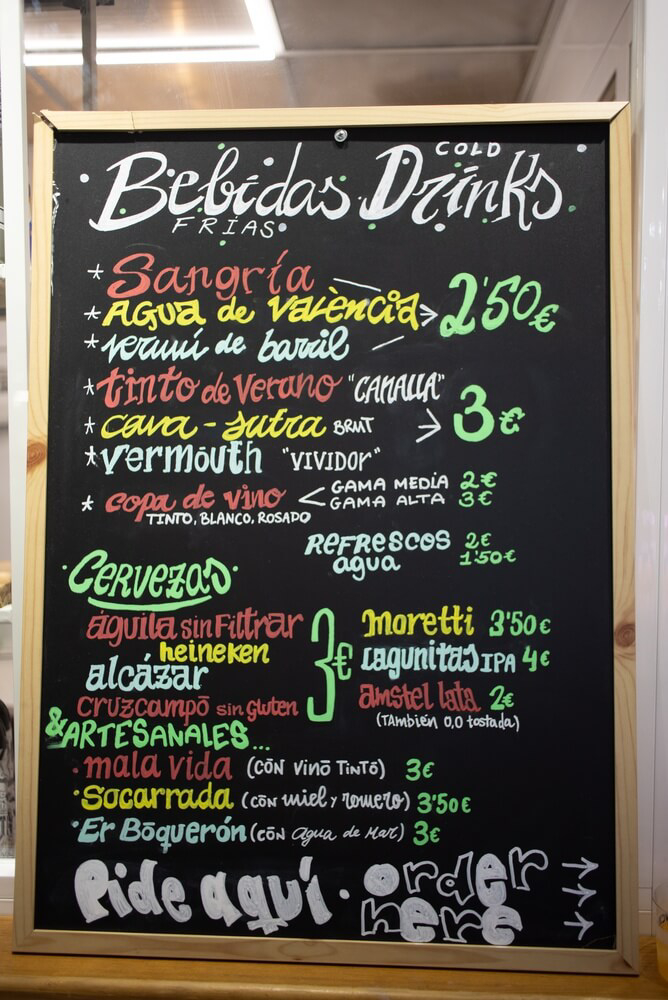 Bebidas COLD Drinks
FRÍAS
* Sangría
* Agua de València → 2'50€
* vermú de barril
* tinto de verano "CANALLA"
* cava - sutra BRUT → 3€
* vermōuth "VIVIDOR"
* copa de vino < GAMA MEDIA 2€
GAMA ALTA 3€
TINTO, BLANCO, ROSADO
REFRESCOS 2€
agua 1'50€
·Cervezas·
águila sin Filtrar
heineken
alcázar
cruzcampō sin gluten
3€
moretti 3'50€
Lagunitas IPA 4€
amstel lata 2€
(También 0,0 tostada)
& ARTESANALES...
· mala vida (CŌN VINŌ TINTŌ) 3€
· Socarrada (CŌN miel y romero) 3'50€
· Er Bōquerōn (CŌN Agua de Mar) 3€
Pide aquí · order
here
→
→
→